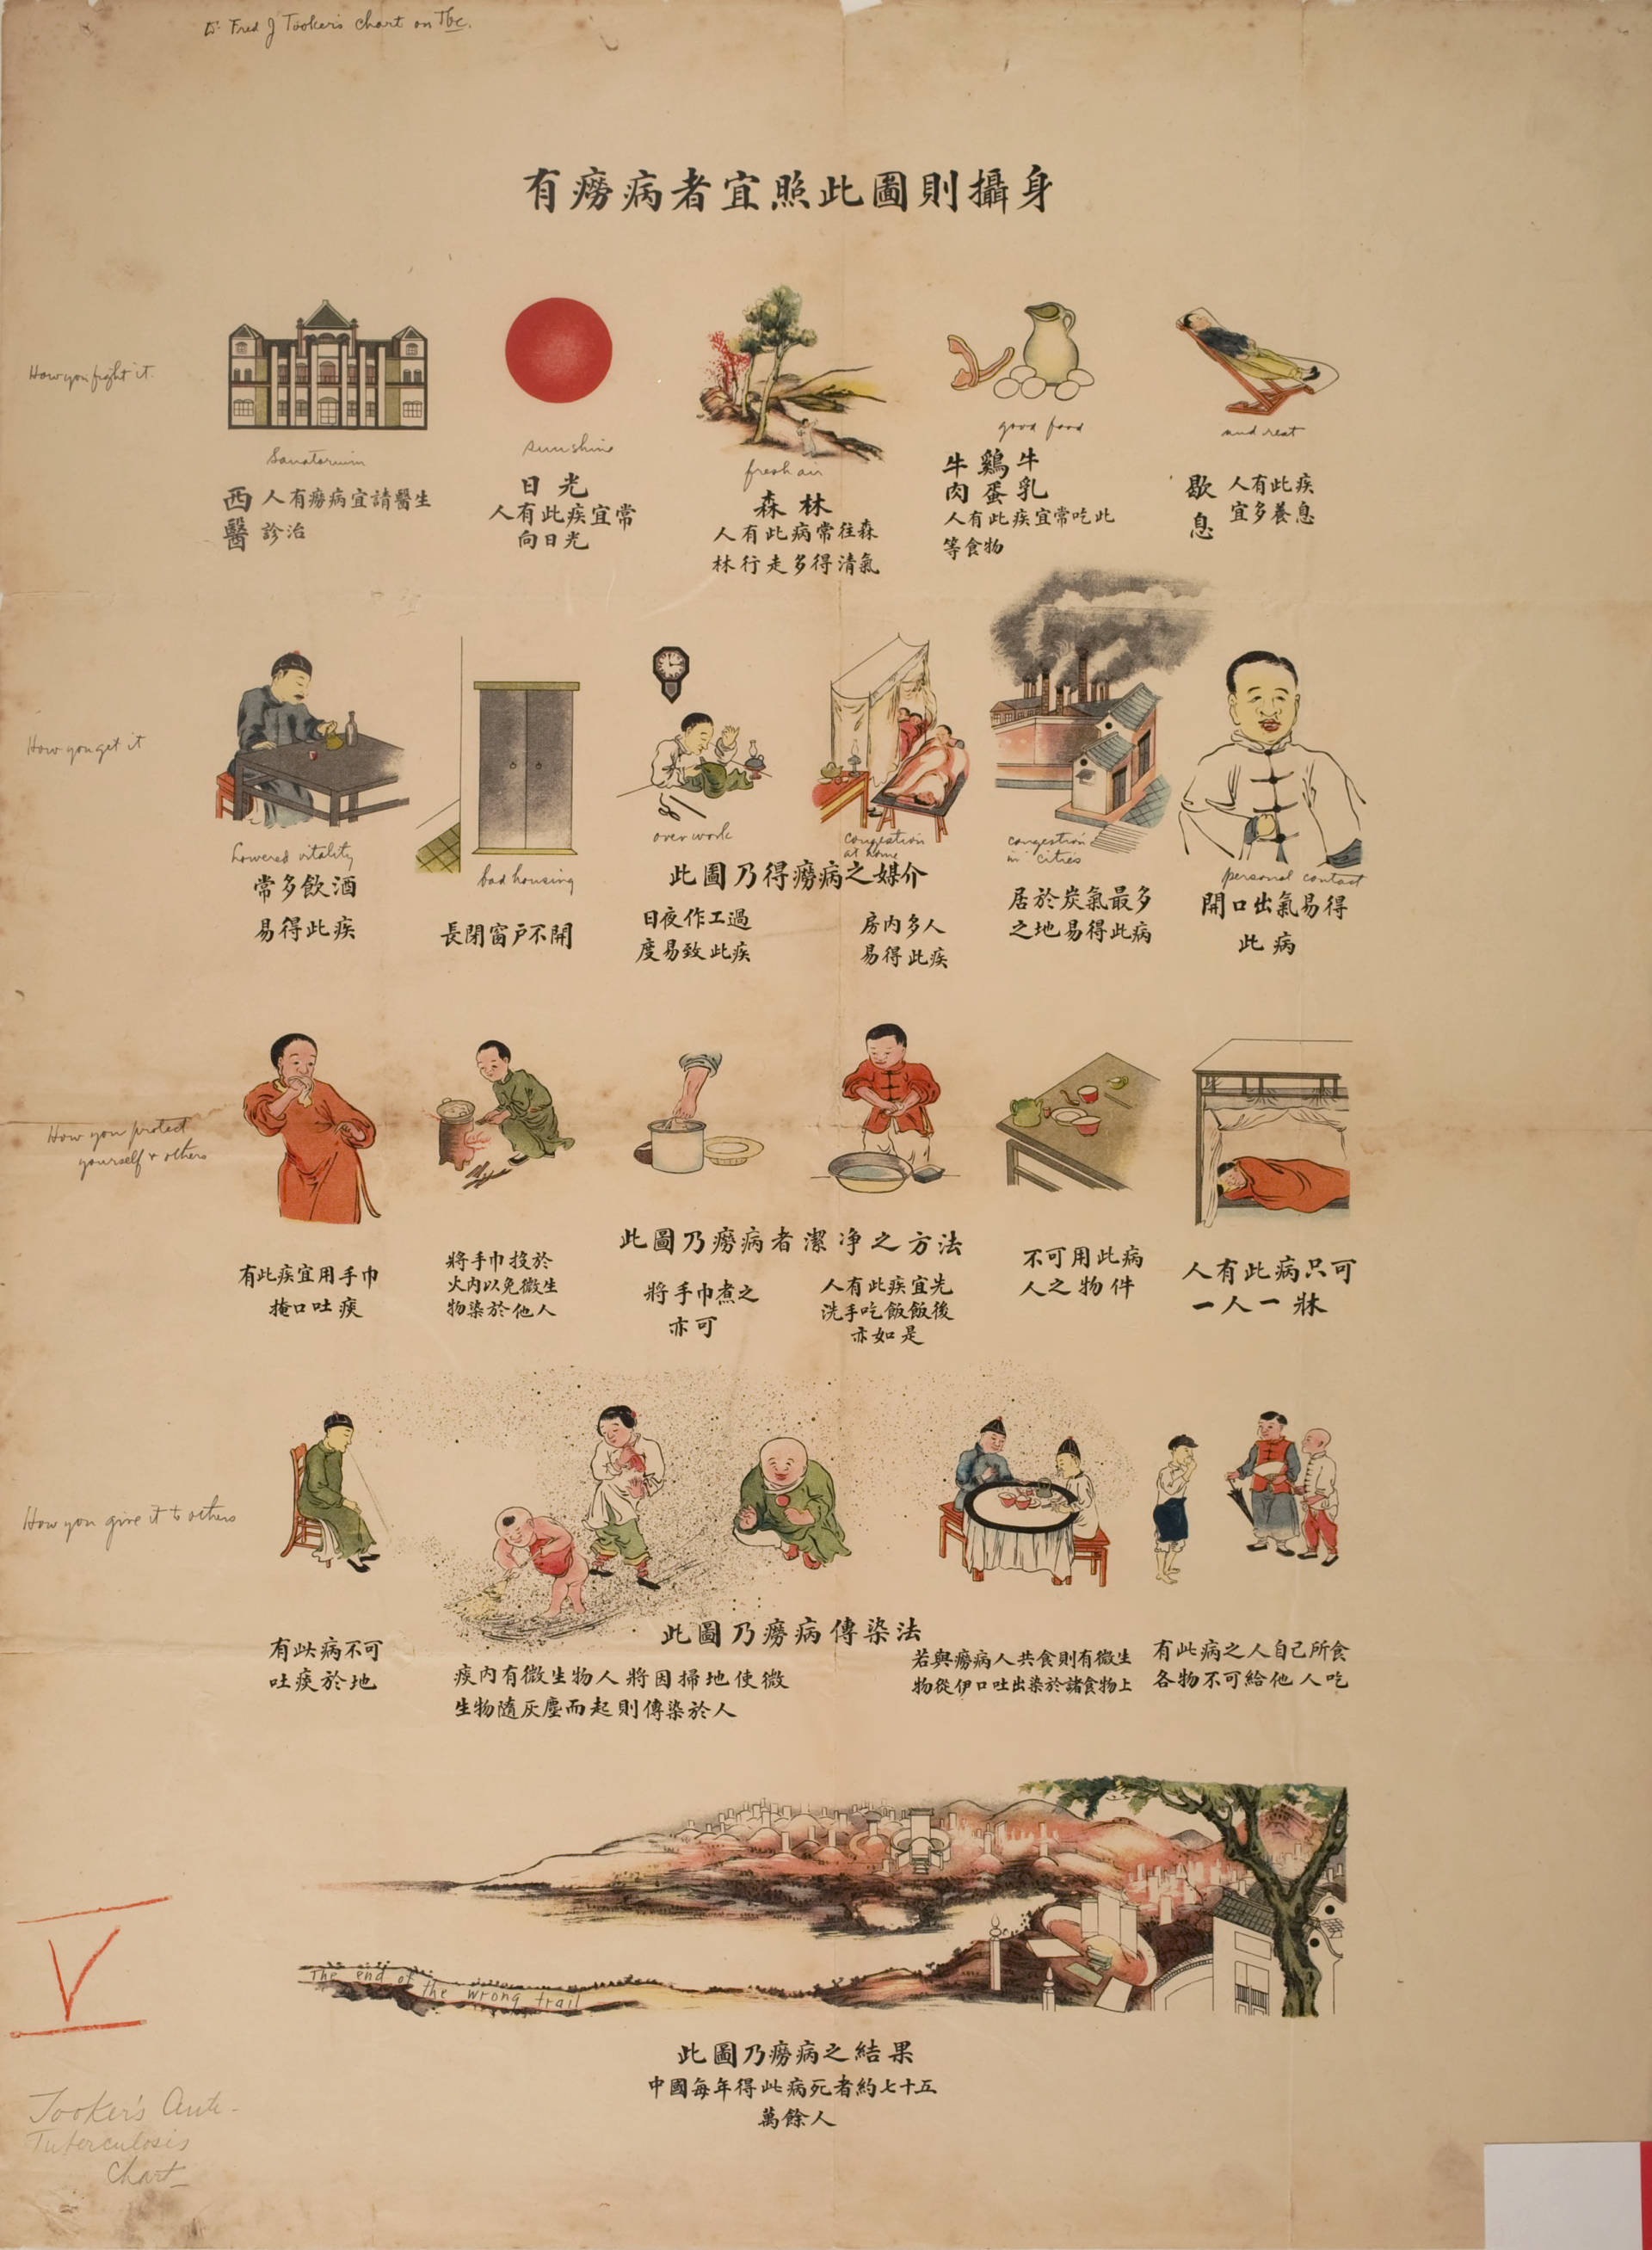 Dr. Fred J Tooker's chart on Tbc.
有癆病者宜照此圖則攝身
How you fight it.
Sanatorium
西醫
人有癆病宜請醫生
診治
sunshine
日光
人有此疾宜常
向日光
fresh air
森林
人有此病常往森
林行走多得清氣
good food
牛鷄牛
肉蛋乳
人有此疾宜常吃此
等食物
and rest
歇息
人有此疾
宜多養息
How you get it
lowered vitality
常多飲酒
易得此疾
bad housing
長閉窗戶不開
over work
此圖乃得癆病之媒介
日夜作工過
度易致此疾
congestion
at home
房内多人
易得此疾
congestion
in cities
居於炭氣最多
之地易得此病
personal contact
開口出氣易得
此病
How you protect
yourself & others
有此疾宜用手巾
掩口吐痰
將手巾投於
火内以免微生
物染於他人
此圖乃癆病者潔净之方法
將手巾煮之
亦可
人有此疾宜先
洗手吃飯飯後
亦如是
不可用此病
人之物件
人有此病只可
一人一牀
How you give it to others
有此病不可
吐痰於地
此圖乃癆病傳染法
痰内有微生物人將因掃地使微
生物隨灰塵而起則傳染於人
若與癆病人共食則有微生
物從伊口吐出染於諸食物上
有此病之人自己所食
各物不可給他人吃
The end of the wrong trail
此圖乃癆病之結果
中國每年得此病死者約七十五
萬餘人
V
Tooker's Anti-
Tuberculosis
Chart